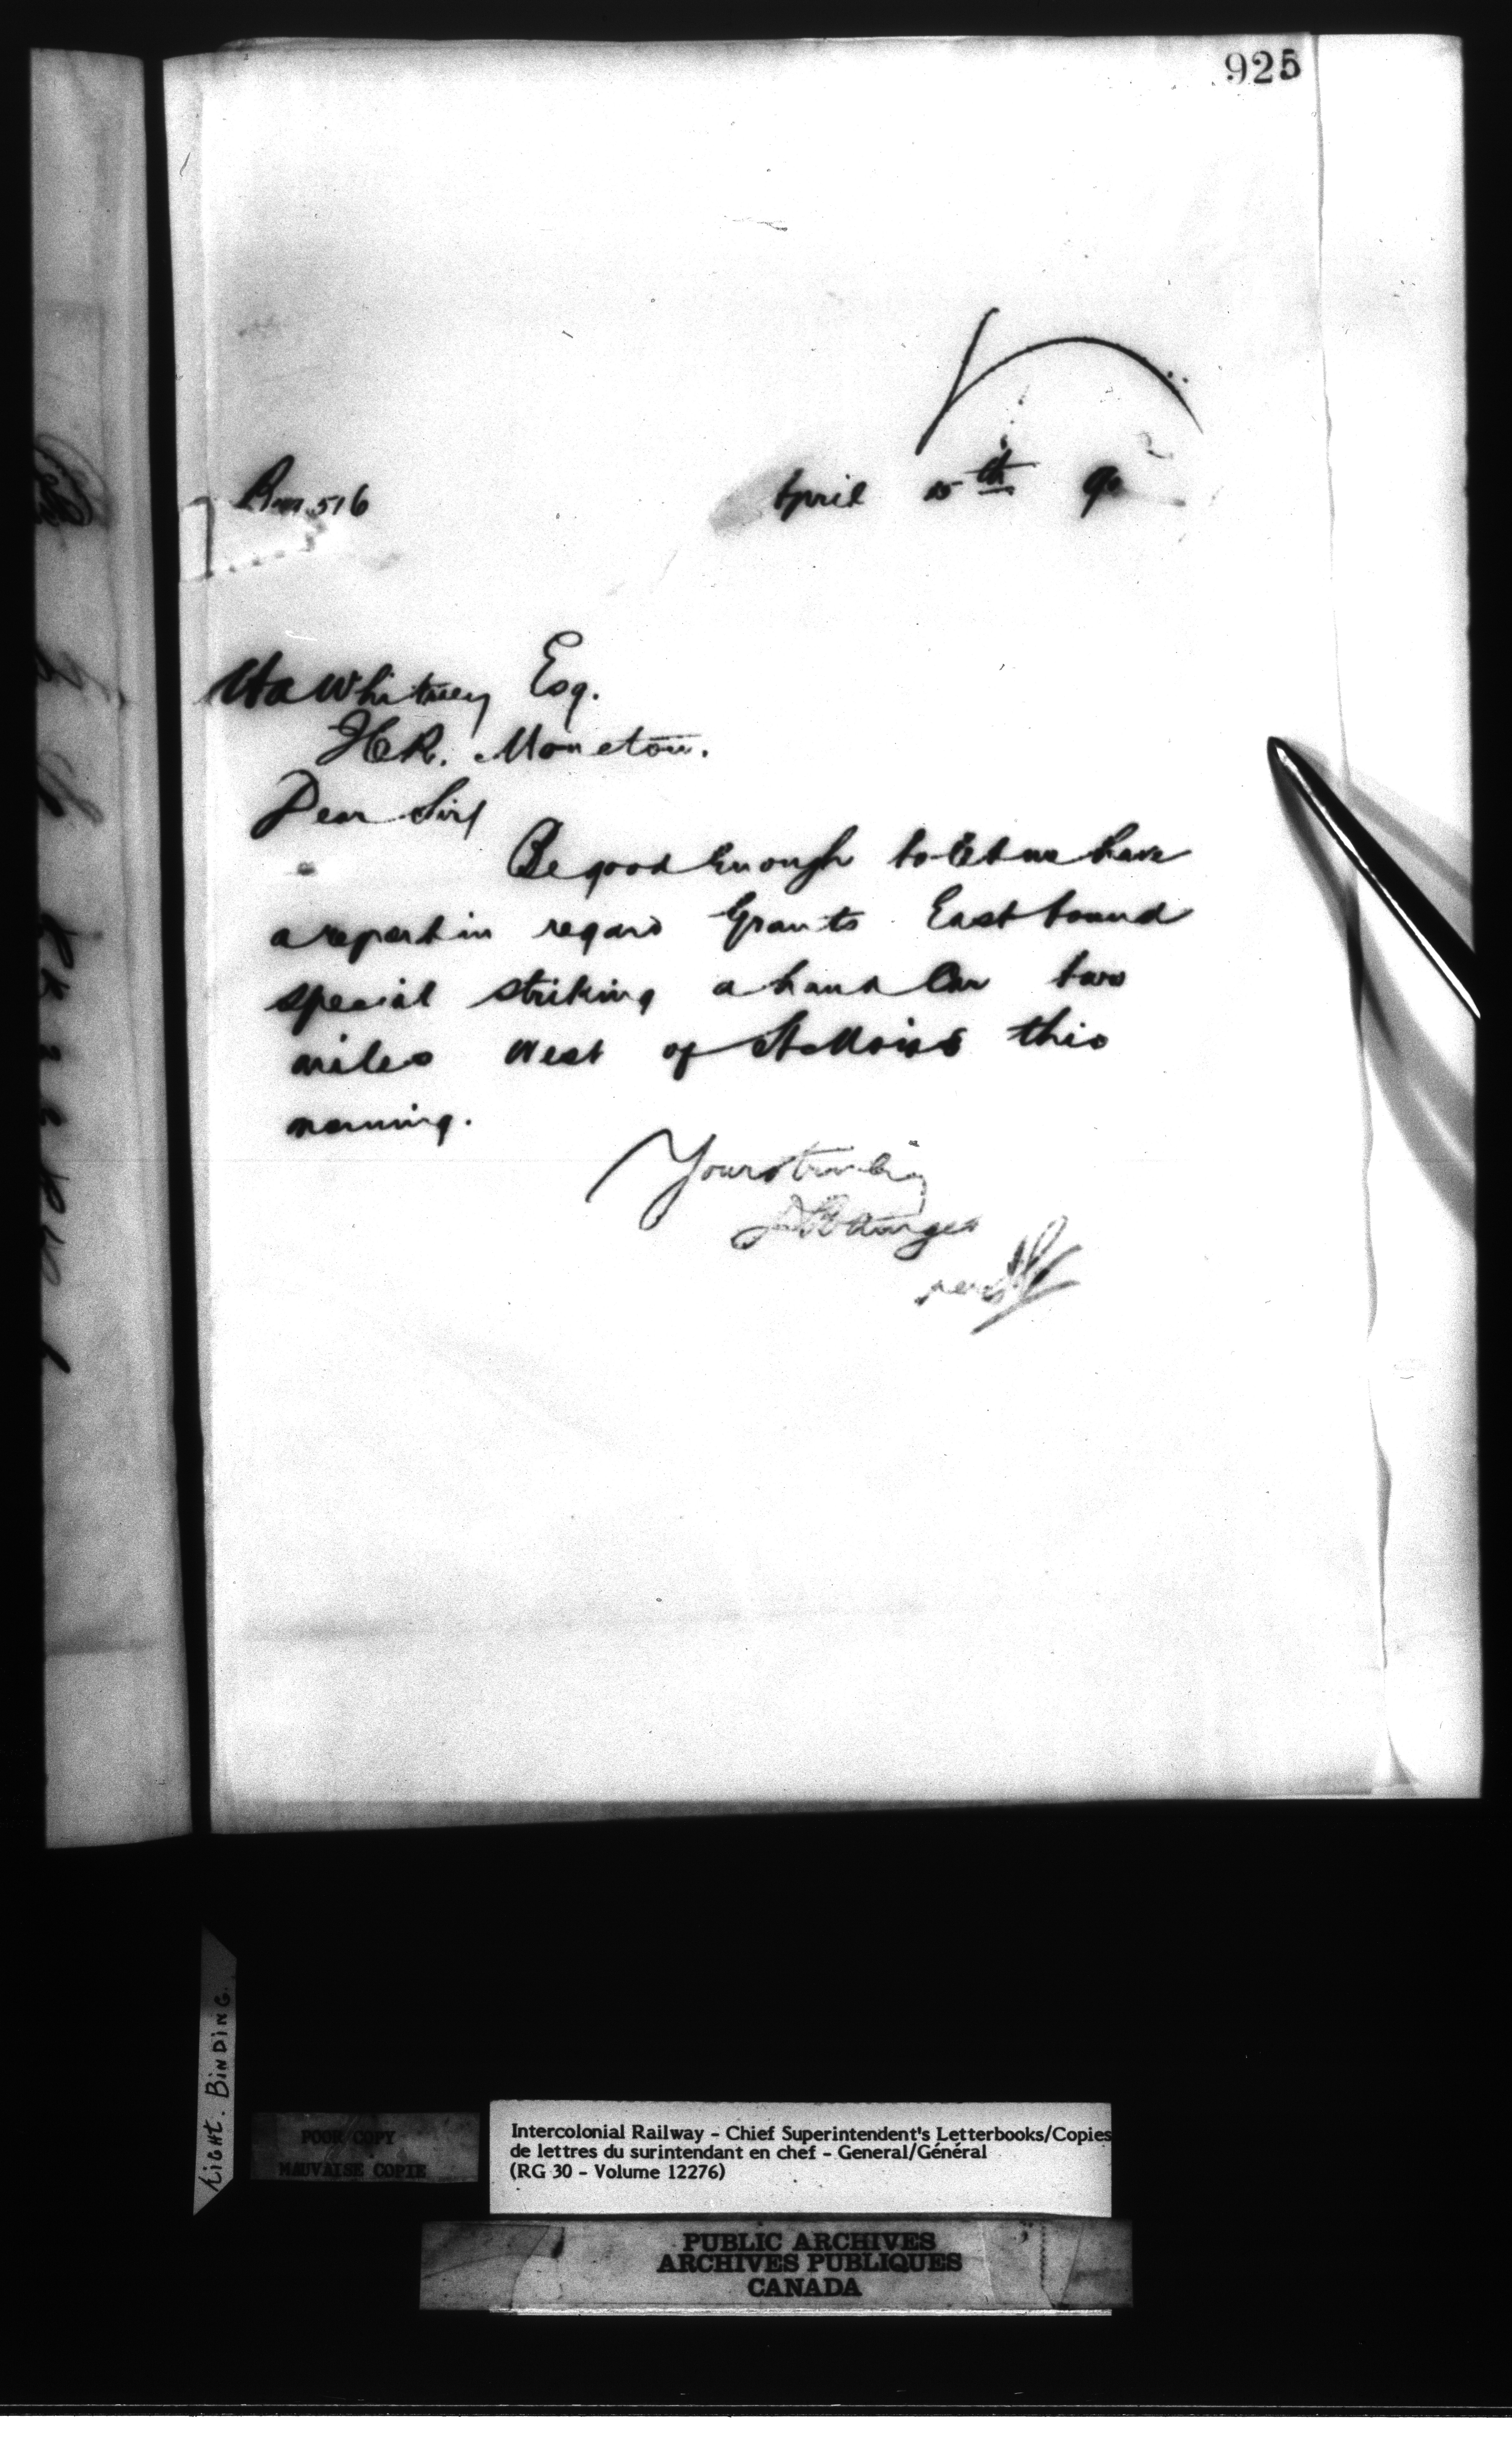 925
516
April 15th 90
Whitney Esq.
Moncton.
Dear Sir/
Be good Enough to let me have
a report in regard Grants East bound
special striking a hand Car two
miles West of St Mois this
morning.
Yours truly
Right. BINDING.
POOR COPY
MAUVAISE COPIE
Intercolonial Railway - Chief Superintendent's Letterbooks/Copies
de lettres du surintendant en chef - General/Général
(RG 30 - Volume 12276)
PUBLIC ARCHIVES
ARCHIVES PUBLIQUES
CANADA